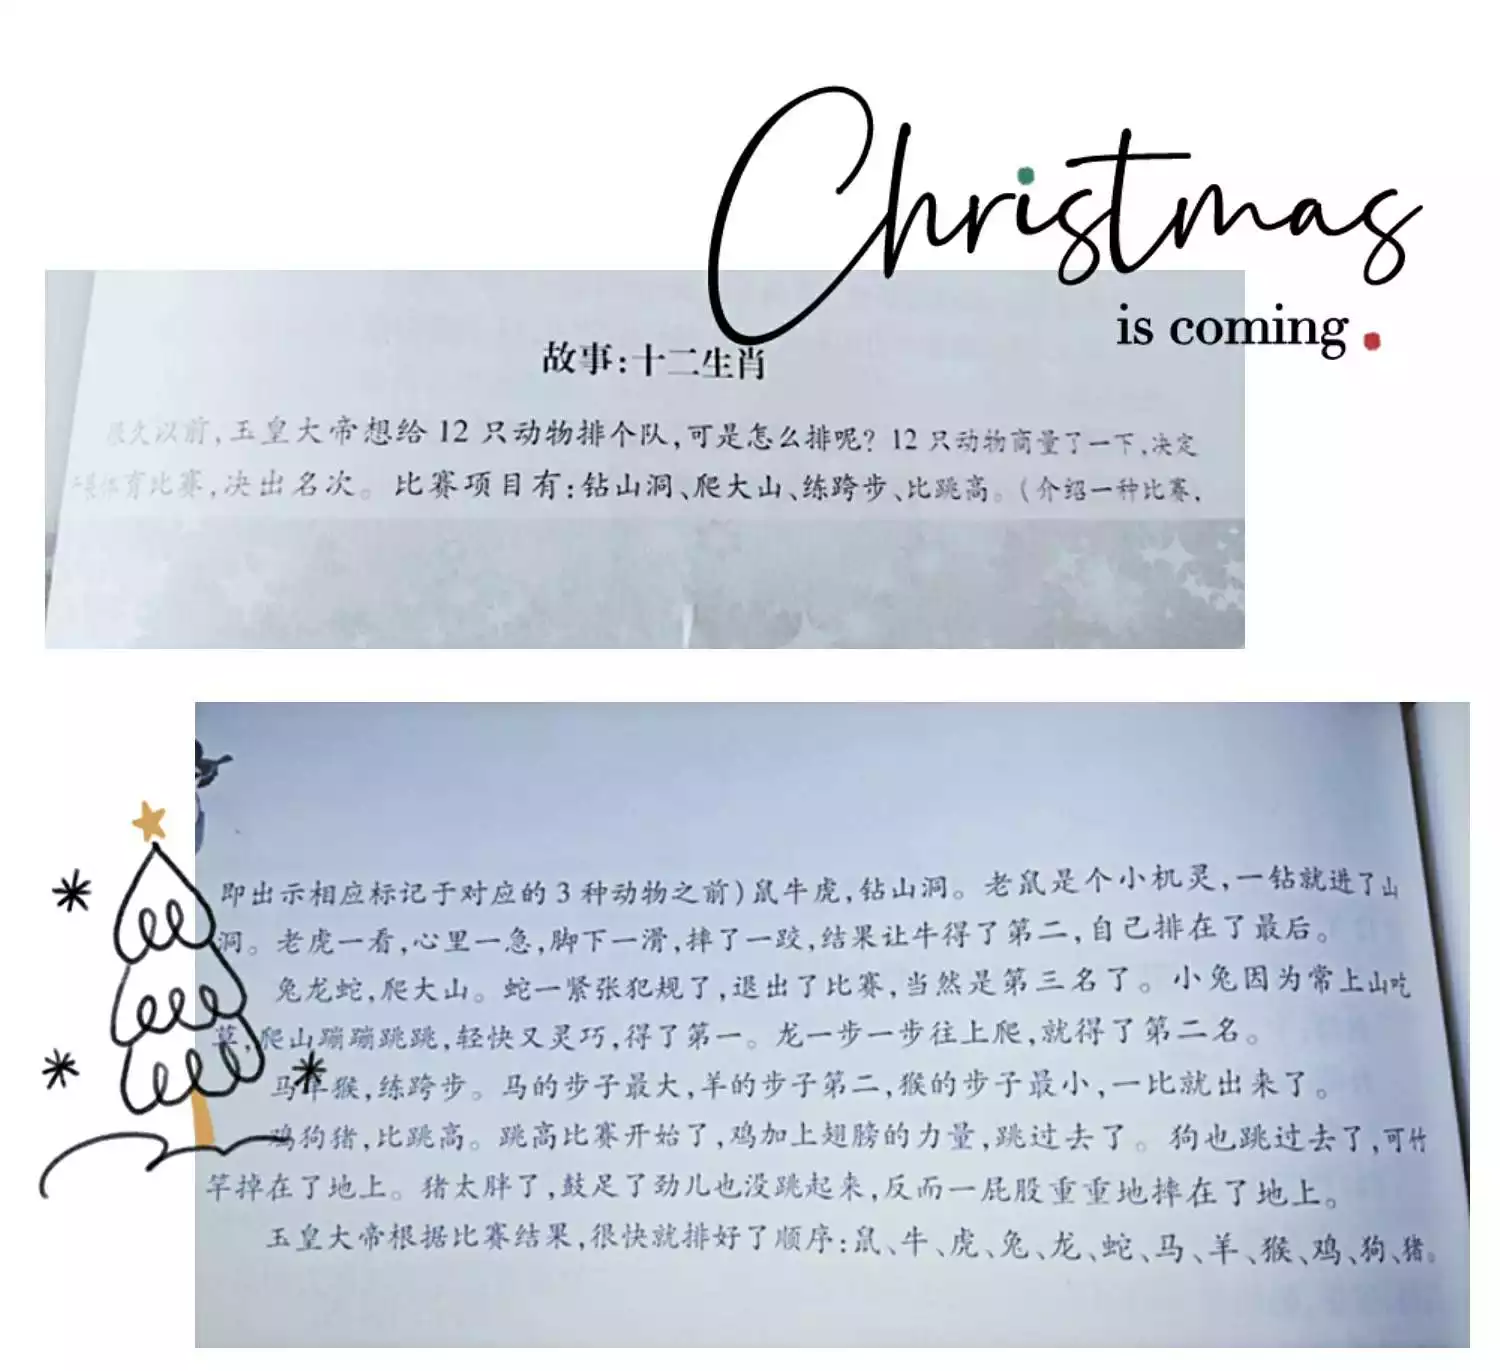 Christmas
is coming
故事：十二生肖
很久以前，玉皇大帝想给 12 只动物排个队，可是怎么排呢？12 只动物商量了一下，决定
体育比赛，决出名次。比赛项目有：钻山洞、爬大山、练跨步、比跳高。（介绍一种比赛，
即出示相应标记于对应的 3 种动物之前）鼠牛虎，钻山洞。老鼠是个小机灵，一钻就进了山
洞。老虎一看，心里一急，脚下一滑，摔了一跤，结果让牛得了第二，自己排在了最后。
兔龙蛇，爬大山。蛇一紧张犯规了，退出了比赛，当然是第三名了。小兔因为常上山吃
草，爬山蹦蹦跳跳，轻快又灵巧，得了第一。龙一步一步往上爬，就得了第二名。
马羊猴，练跨步。马的步子最大，羊的步子第二，猴的步子最小，一比就出来了。
鸡狗猪，比跳高。跳高比赛开始了，鸡加上翅膀的力量，跳过去了。狗也跳过去了，可竹
竿掉在了地上。猪太胖了，鼓足了劲儿也没跳起来，反而一屁股重重地摔在了地上。
玉皇大帝根据比赛结果，很快就排好了顺序：鼠、牛、虎、兔、龙、蛇、马、羊、猴、鸡、狗、猪。